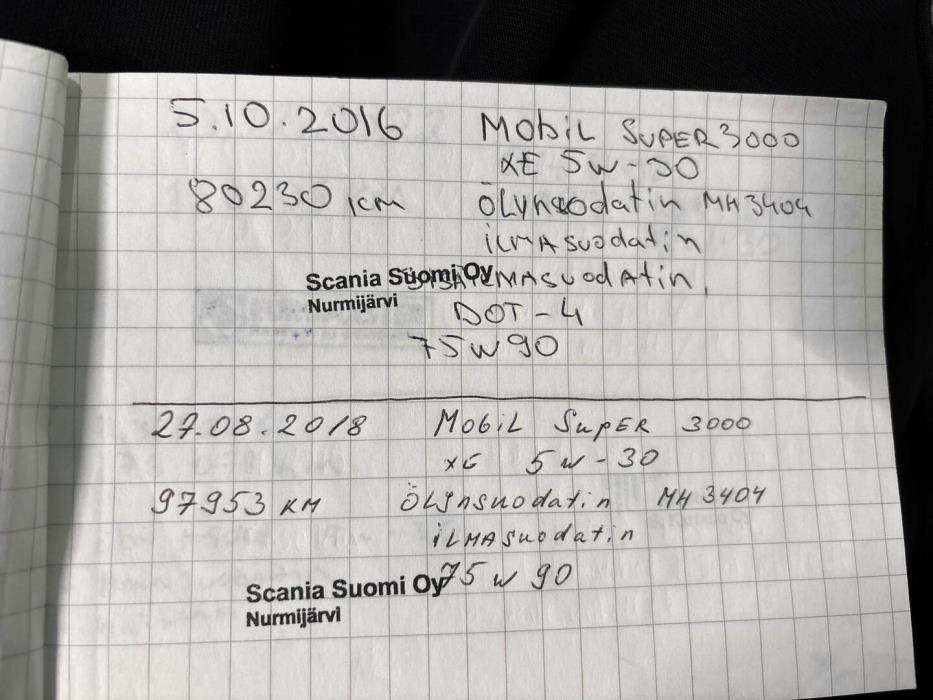 5.10.2016 Mobil Super 3000
XE 5W-30
80230 km Ölynsuodatin MH3404
ilmasuodatin
Scania Suomi Oy Sisäilmasuodatin
Nurmijärvi DOT-4
75W90
27.08.2018 Mobil Super 3000
XE 5W-30
97953 KM Öljnsuodatin MH 3404
ilmasuodatin
Scania Suomi Oy 75W90
Nurmijärvi